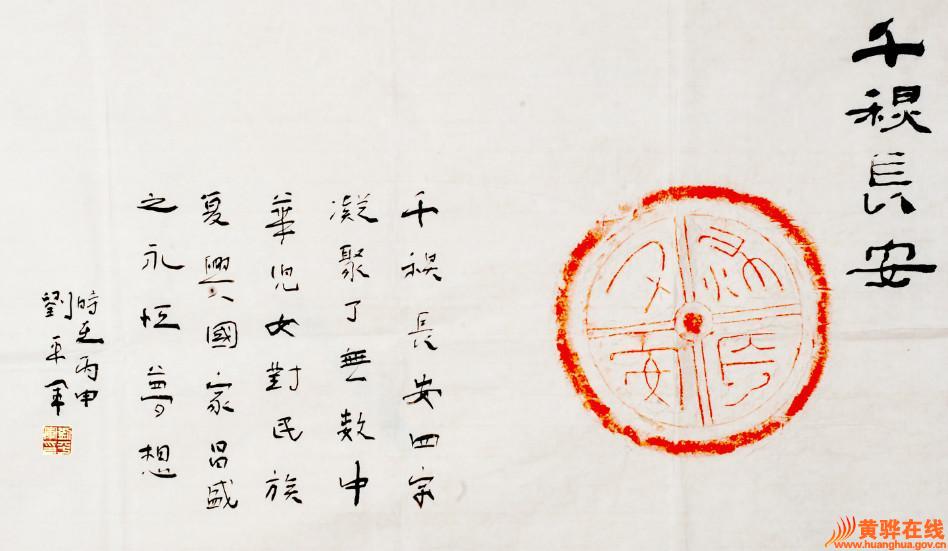 千秋長安
千秋長安四字
凝聚了無数中
華児女對民族
复興國家昌盛
之永恒夢想
時在丙申
劉平軍
黄骅在线
www.huanghua.gov.cn